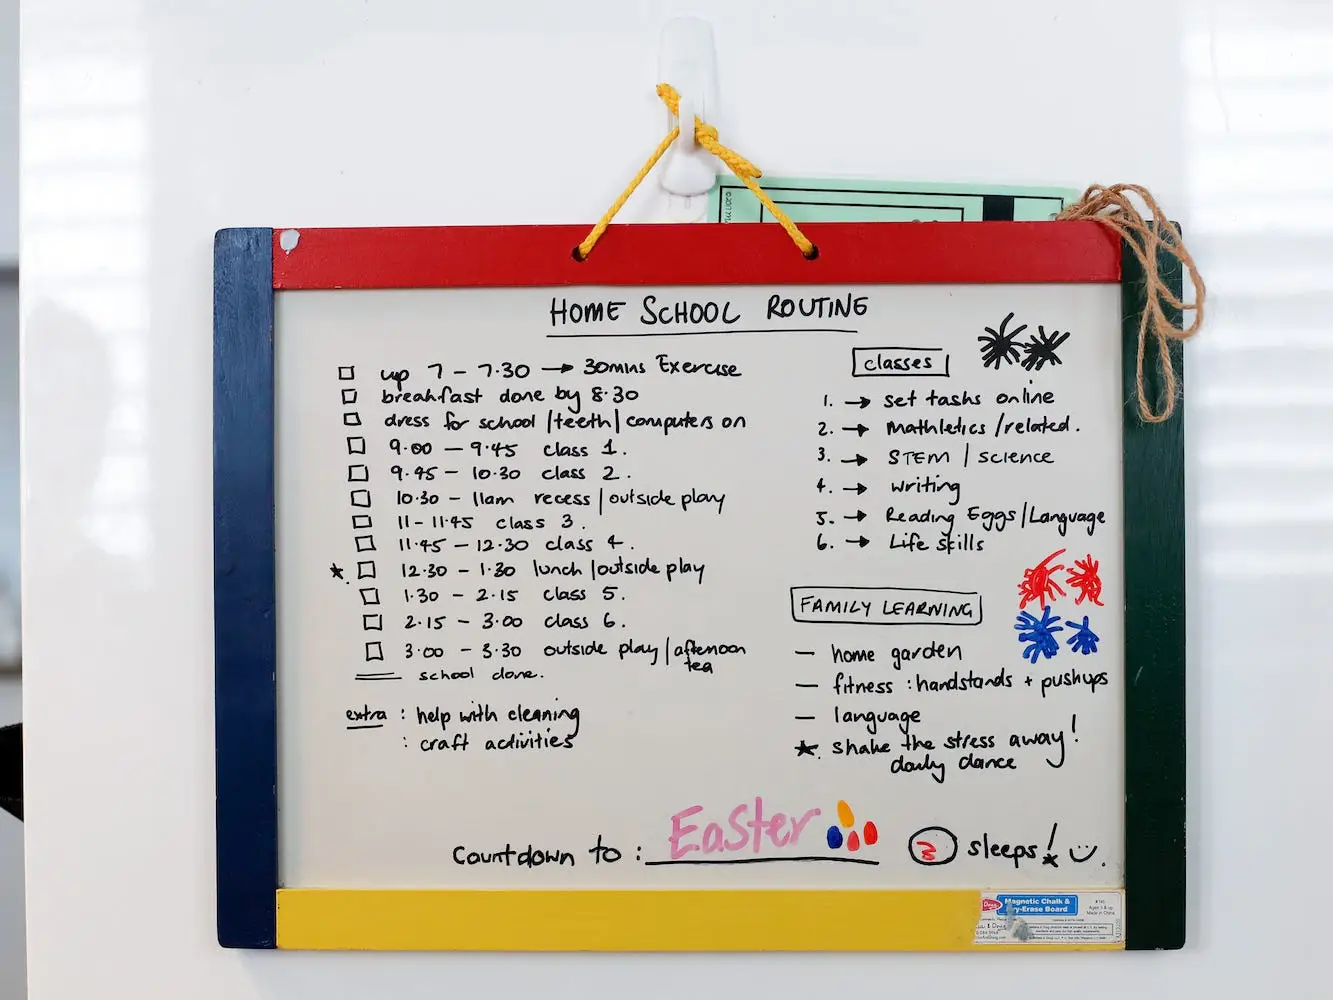 HOME SCHOOL ROUTINE
up 7 - 7.30 → 30mins Exercise
breakfast done by 8.30
dress for school / teeth / computers on
9.00 - 9.45 class 1.
9.45 - 10.30 class 2.
10.30 - 11am recess / outside play
11 - 11.45 class 3.
11.45 - 12.30 class 4.
12.30 - 1.30 lunch / outside play
1.30 - 2.15 class 5.
2.15 - 3.00 class 6.
3.00 - 3.30 outside play / afternoon
tea
school done.
extra : help with cleaning
: craft activities
classes
1. → set tasks online
2. → Mathletics / related.
3. → STEM / science
4. → writing
5. → Reading Eggs / Language
6. → Life skills
FAMILY LEARNING
- home garden
- fitness : handstands + pushups
- language
★. shake the stress away!
daily dance
Countdown to : Easter 3 sleeps!
Magnetic Chalk &
Dry-Erase Board
Ages 3 & up
Made in China